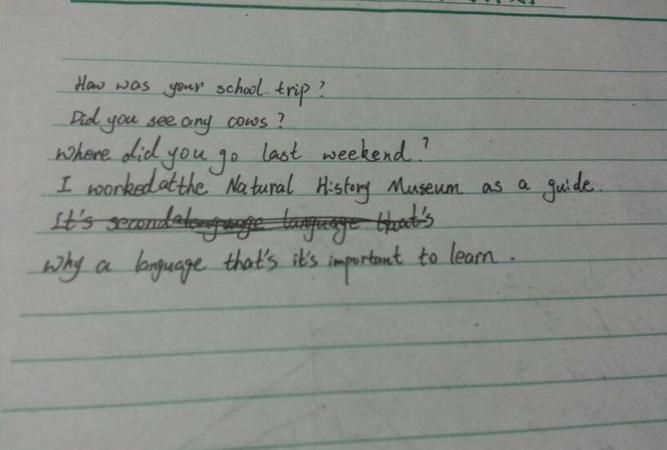 How was your school trip?
Did you see any cows?
where did you go last weekend?
I worked at the Natural History Museum as a guide.
It's second language that's
why a language that's it's important to learn.